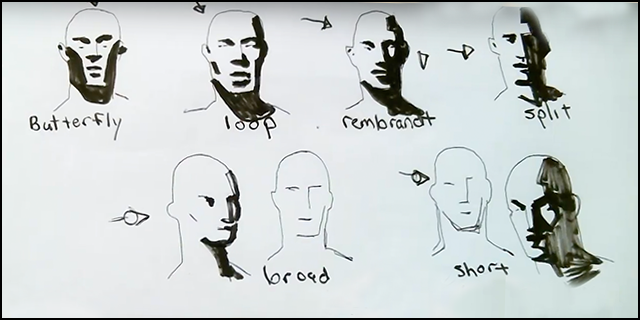 Butterfly
loop
rembrandt
split
broad
short